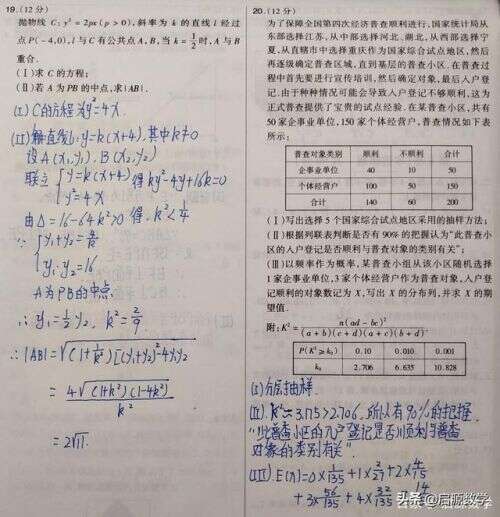 19. (12分)
抛物线 C: y² = 2px(p>0), 斜率为 k 的直线 l 经过
点 P(-4,0), l 与 C 有公共点 A, B, 当 k = 1/2 时, A 与 B
重合.
(Ⅰ)求 C 的方程;
(Ⅱ)若 A 为 PB 的中点, 求|AB|.
(I) C的方程为y²=4x.
y=k(x+4), 其中k≠0
设A(x₁,y₁), B(x₂,y₂)
联立{y=k(x+4) 得ky²-4y+16k=0
y²=4x
由△=16-64k²>0 得, k²<1/4
∵{y₁+y₂=4/k
y₁·y₂=16
A为PB的中点,
∴y₁=1/2 y₂, k²=2/9
∴|AB|=√(1+1/k²)[(y₁+y₂)²-4y₁y₂]
=4√(1+k²)(1-4k²)/k²
=2√11.
20. (12分)
为了保障全国第四次经济普查顺利进行, 国家统计局从
东部选择江苏, 从中部选择河北、湖北, 从西部选择宁
夏, 从直辖市中选择重庆作为国家综合试点地区, 然后
再逐级确定普查区域, 直到基层的普查小区. 在普查过
程中首先要进行宣传培训, 然后确定对象, 最后入户登
记. 由于种种情况可能会导致入户登记不够顺利, 这为
正式普查提供了宝贵的试点经验. 在某普查小区, 共有
50 家企事业单位, 150 家个体经营户, 普查情况如下表
所示:
普查对象类别 顺利 不顺利 合计
企事业单位 40 10 50
个体经营户 100 50 150
合计 140 60 200
(Ⅰ)写出选择 5 个国家综合试点地区采用的抽样方法;
(Ⅱ)根据列联表判断是否有 90% 的把握认为"此普查小
区的入户登记是否顺利与普查对象的类别有关";
(Ⅲ)以频率作为概率, 某普查小组从该小区随机选择
1 家企事业单位, 3 家个体经营户作为普查对象, 入户登
记顺利的对象数记为 X, 写出 X 的分布列, 并求 X 的期
望值.
附: K² = n(ad-bc)²/(a+b)(c+d)(a+c)(b+d).
P(K²≥k₀) 0.10 0.010 0.001
k₀ 2.706 6.635 10.828
(I) 分层抽样.
(II). K²≈3.175>2.706, 所以有90%的把握
"此普查小区的入户登记是否顺利与普查
对象的类别有关".
(III). E(X)=0×1/135+1×2/27+2×4/15
+3×56/135+4×32/135
头条 @启源数学